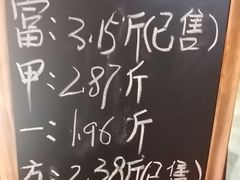 富：3.15斤(已售)
甲：2.87斤
一：1.96斤
方：2.38斤(已售)